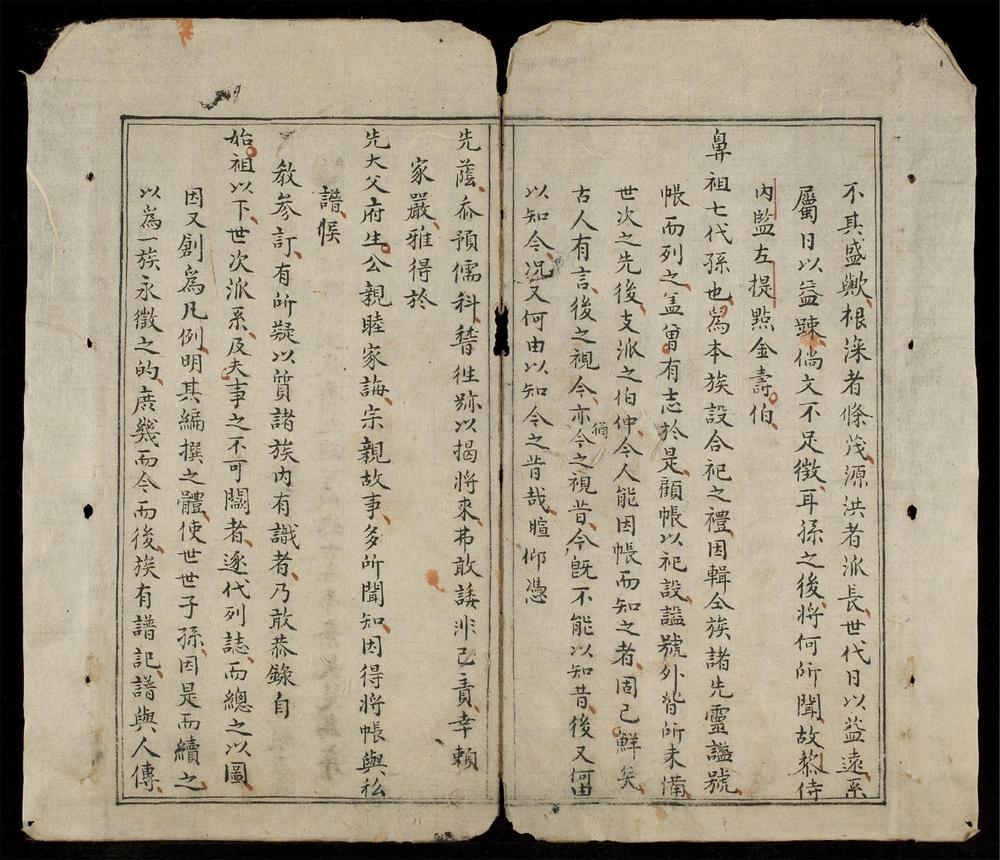 不其盛歟根深者條茂源洪者派長世代日以益遠系
屬日以益踈倘文不足徵耳孫之後將何所聞故黎侍
內監左提點金壽伯
鼻祖七代孫也為本族設合祀之禮因輯全族諸先靈謚號
帳而列之盖曾有志於是顧帳以祀設謚號外皆所未備
世次之先後支派之伯仲今人能因帳而知之者固已鮮矣
古人有言後之視今亦猶今之視昔今既不能以知昔後又何由
以知今况又何由以知今之昔哉暄仰憑
先蔭忝預儒科稽徃跡以揭將來弗敢諉非己責幸賴
家嚴雅得於
先大父府生公親睦家誨宗親故事多所聞知因得將帳與私
譜候
教參訂有所疑以質諸族內有識者乃敢恭錄自
始祖以下世次派系及夫事之不可闕者逐代列誌而總之以圖
因又創為凡例明其編撰之體使世世子孫因是而續之
以為一族永徵之的庶幾而今而後族有譜記譜與人傳